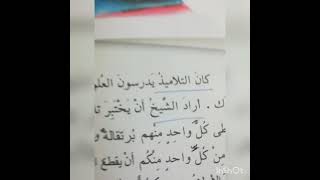 كَانَ التلاميذُ يَدرسونَ العُلو
ك . ارادَ الشَّيخُ أنْ يَخْتَبِرَ تلا
طى كُلَّ واحدٍ مِنْهم بُرتقالةً و
مِنْ كُلِّ واحدٍ مِنُكم أنْ يقطَعَ
InShOt